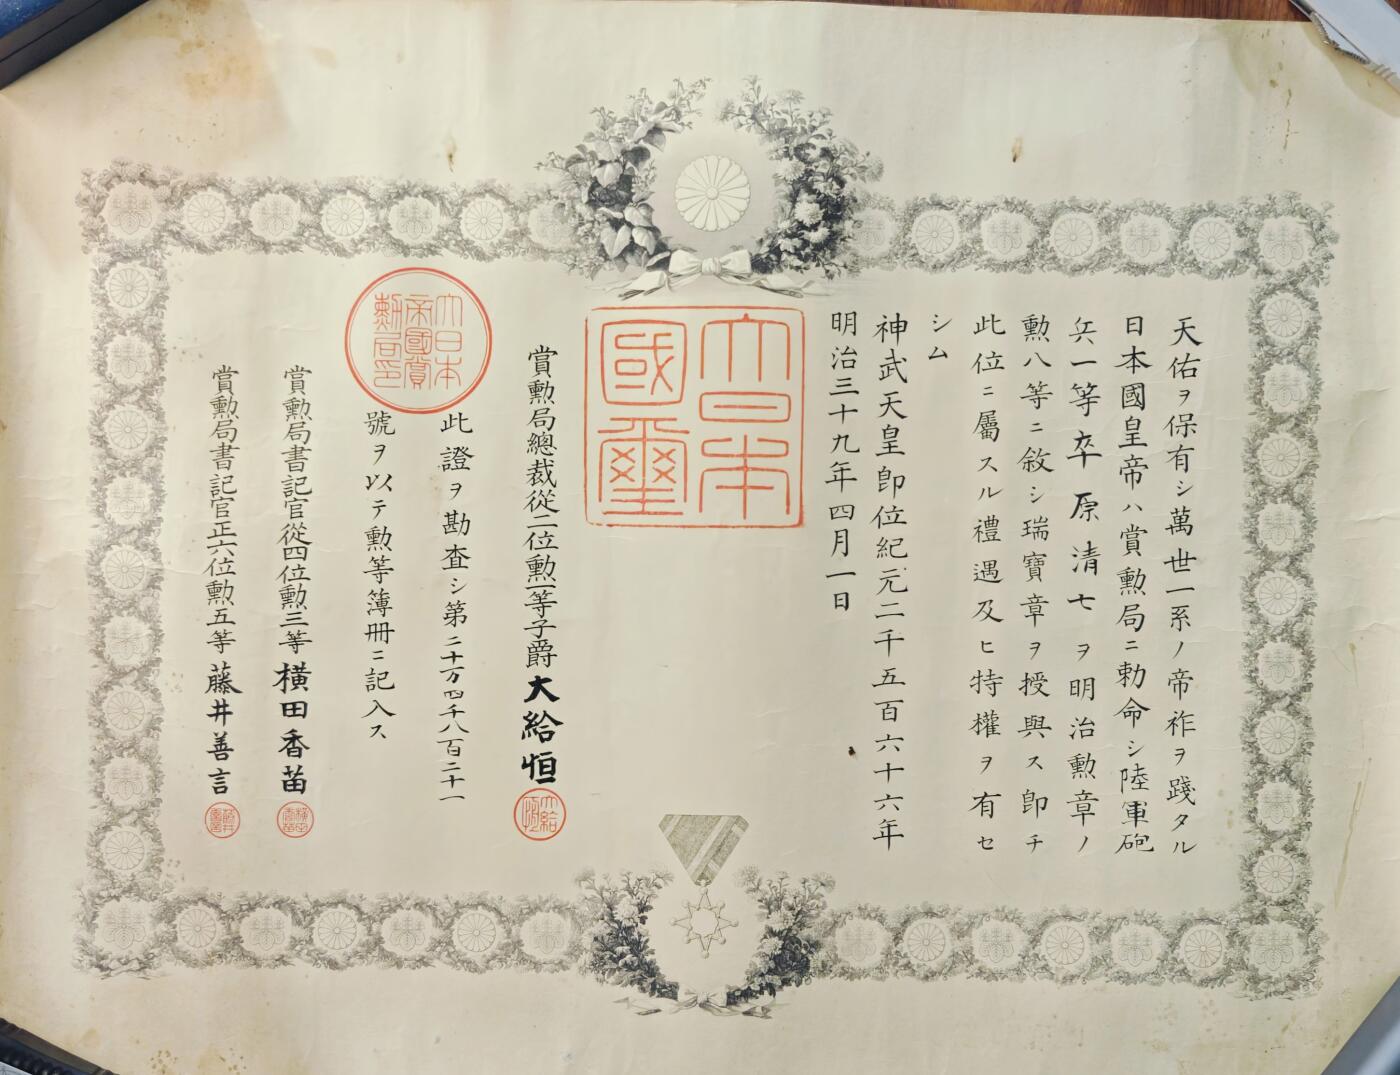 天佑ヲ保有シ萬世一系ノ帝祚ヲ踐タル
日本國皇帝ハ賞勲局ニ勅命シ陸軍砲
兵一等卒原清七ヲ明治勲章ノ
勲八等ニ敘シ瑞寶章ヲ授與ス卽チ
此位ニ屬スル禮遇及ヒ特權ヲ有セ
シム
神武天皇卽位紀元二千五百六十六年
明治三十九年四月一日
大日本國璽
賞勲局總裁從二位勲一等子爵大給恒
大給恒
此證ヲ勘査シ第二十万四千八百二十一
號ヲ以テ勲等簿冊ニ記入ス
大日本帝國賞勲局印
賞勲局書記官從四位勲三等橫田香苗
橫田香苗
賞勲局書記官正六位勲五等藤井善言
藤井善言